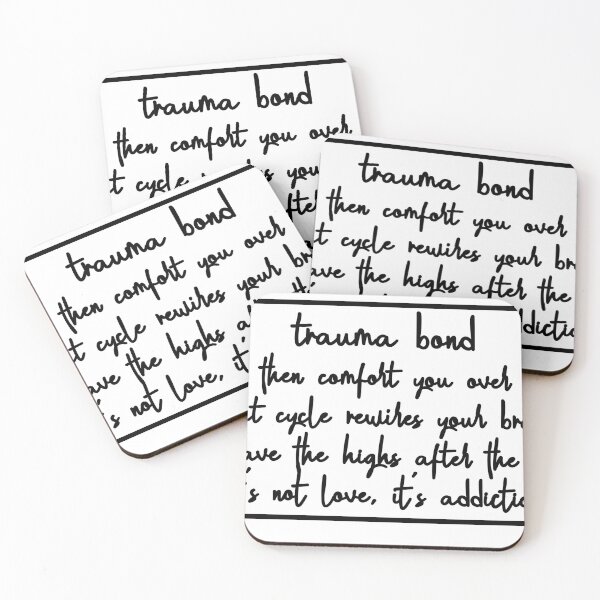 trauma bond
then comfort you over
t cycle
trauma bond
then comfort you over
t cycle rewires your br
ave the highs after the
trauma bond
then comfort you over
t cycle rewires your
ave the highs
's not love, it's
trauma bond
then comfort you over
t cycle rewires your br
ave the highs after the
's not love, it's addicti